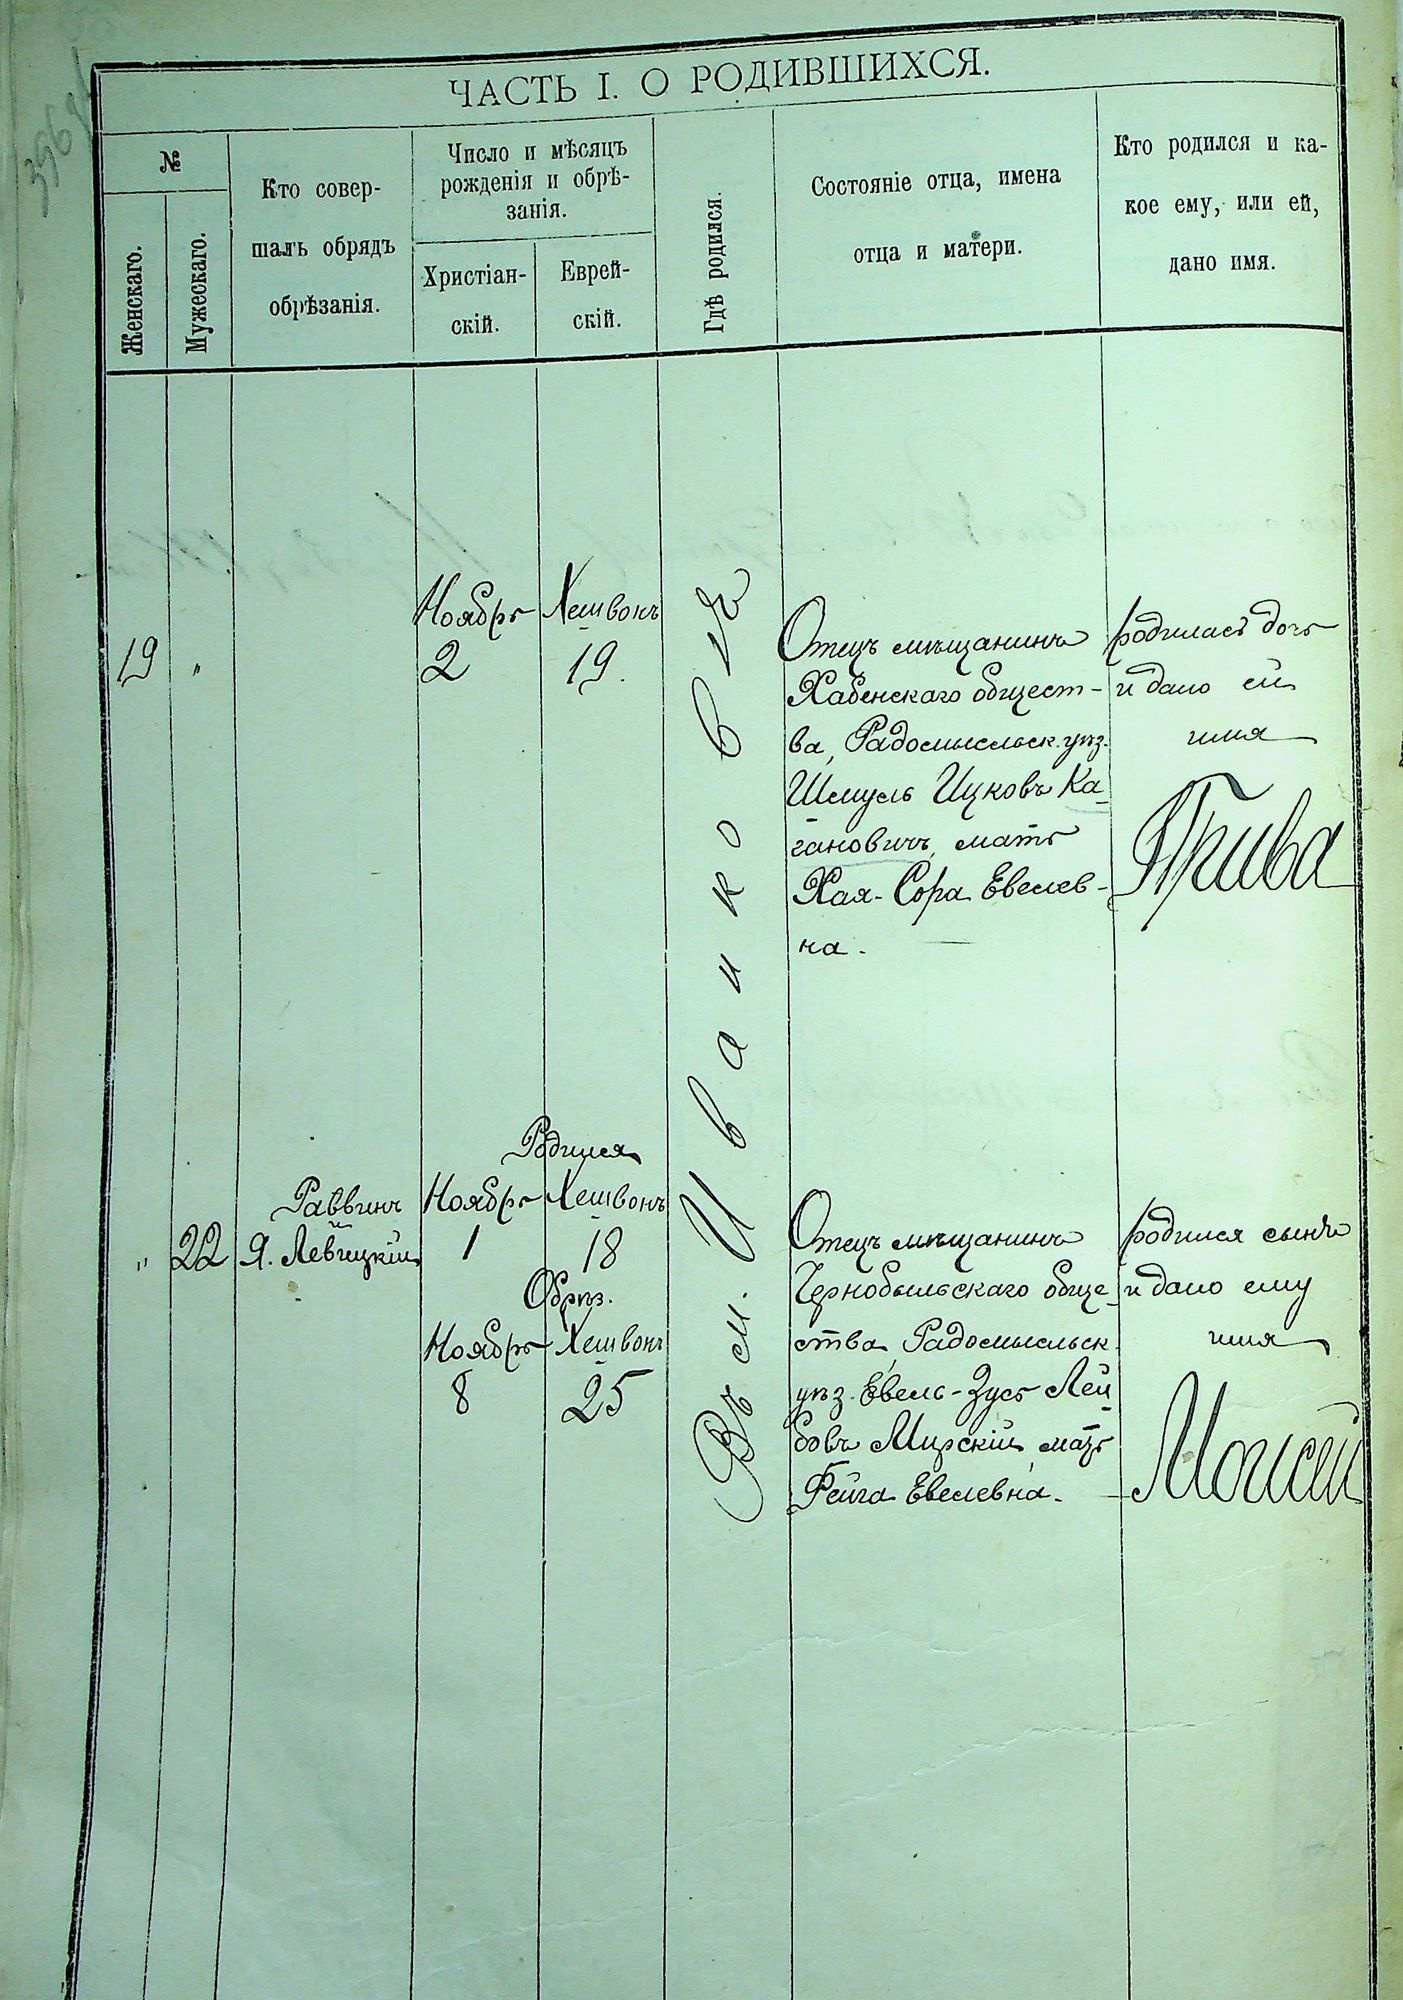 ЧАСТЬ I. О РОДИВШИХСЯ.
№
Женскаго.
Мужескаго.
Кто совер-
шалъ обрядъ
обрѣзанія.
Число и мѣсяцъ
рожденія и обрѣ-
занія.
Христіан-
скій.
Еврей-
скій.
Гдѣ родился.
Состояніе отца, имена
отца и матери.
Кто родился и ка-
кое ему, или ей,
дано имя.
19
"
Ноябрь
2
Хешвонъ
19.
Въ м. Иванковѣ
Отецъ мѣщанинъ
Хабенскаго общест-
ва, Радомысльск. уѣз.
Шмуль Ицковъ Ка-
гановичъ, мать
Хая-Сора Евелев-
на.
родилась дочь
и дано ей
имя
Прива
"
22
Раввинъ
Я. Левицкій
Родился
Ноябрь
1
Хешвонъ
18
Обрѣз.
Ноябрь
8
Хешвонъ
25
Отецъ мѣщанинъ
Чернобыльскаго обще-
ства, Радомысльск.
уѣз. Евель-Зусь Лей-
бовъ Мирскій, мать
Фейга Евелевна.
родился сынъ
и дано ему
имя
Моисей